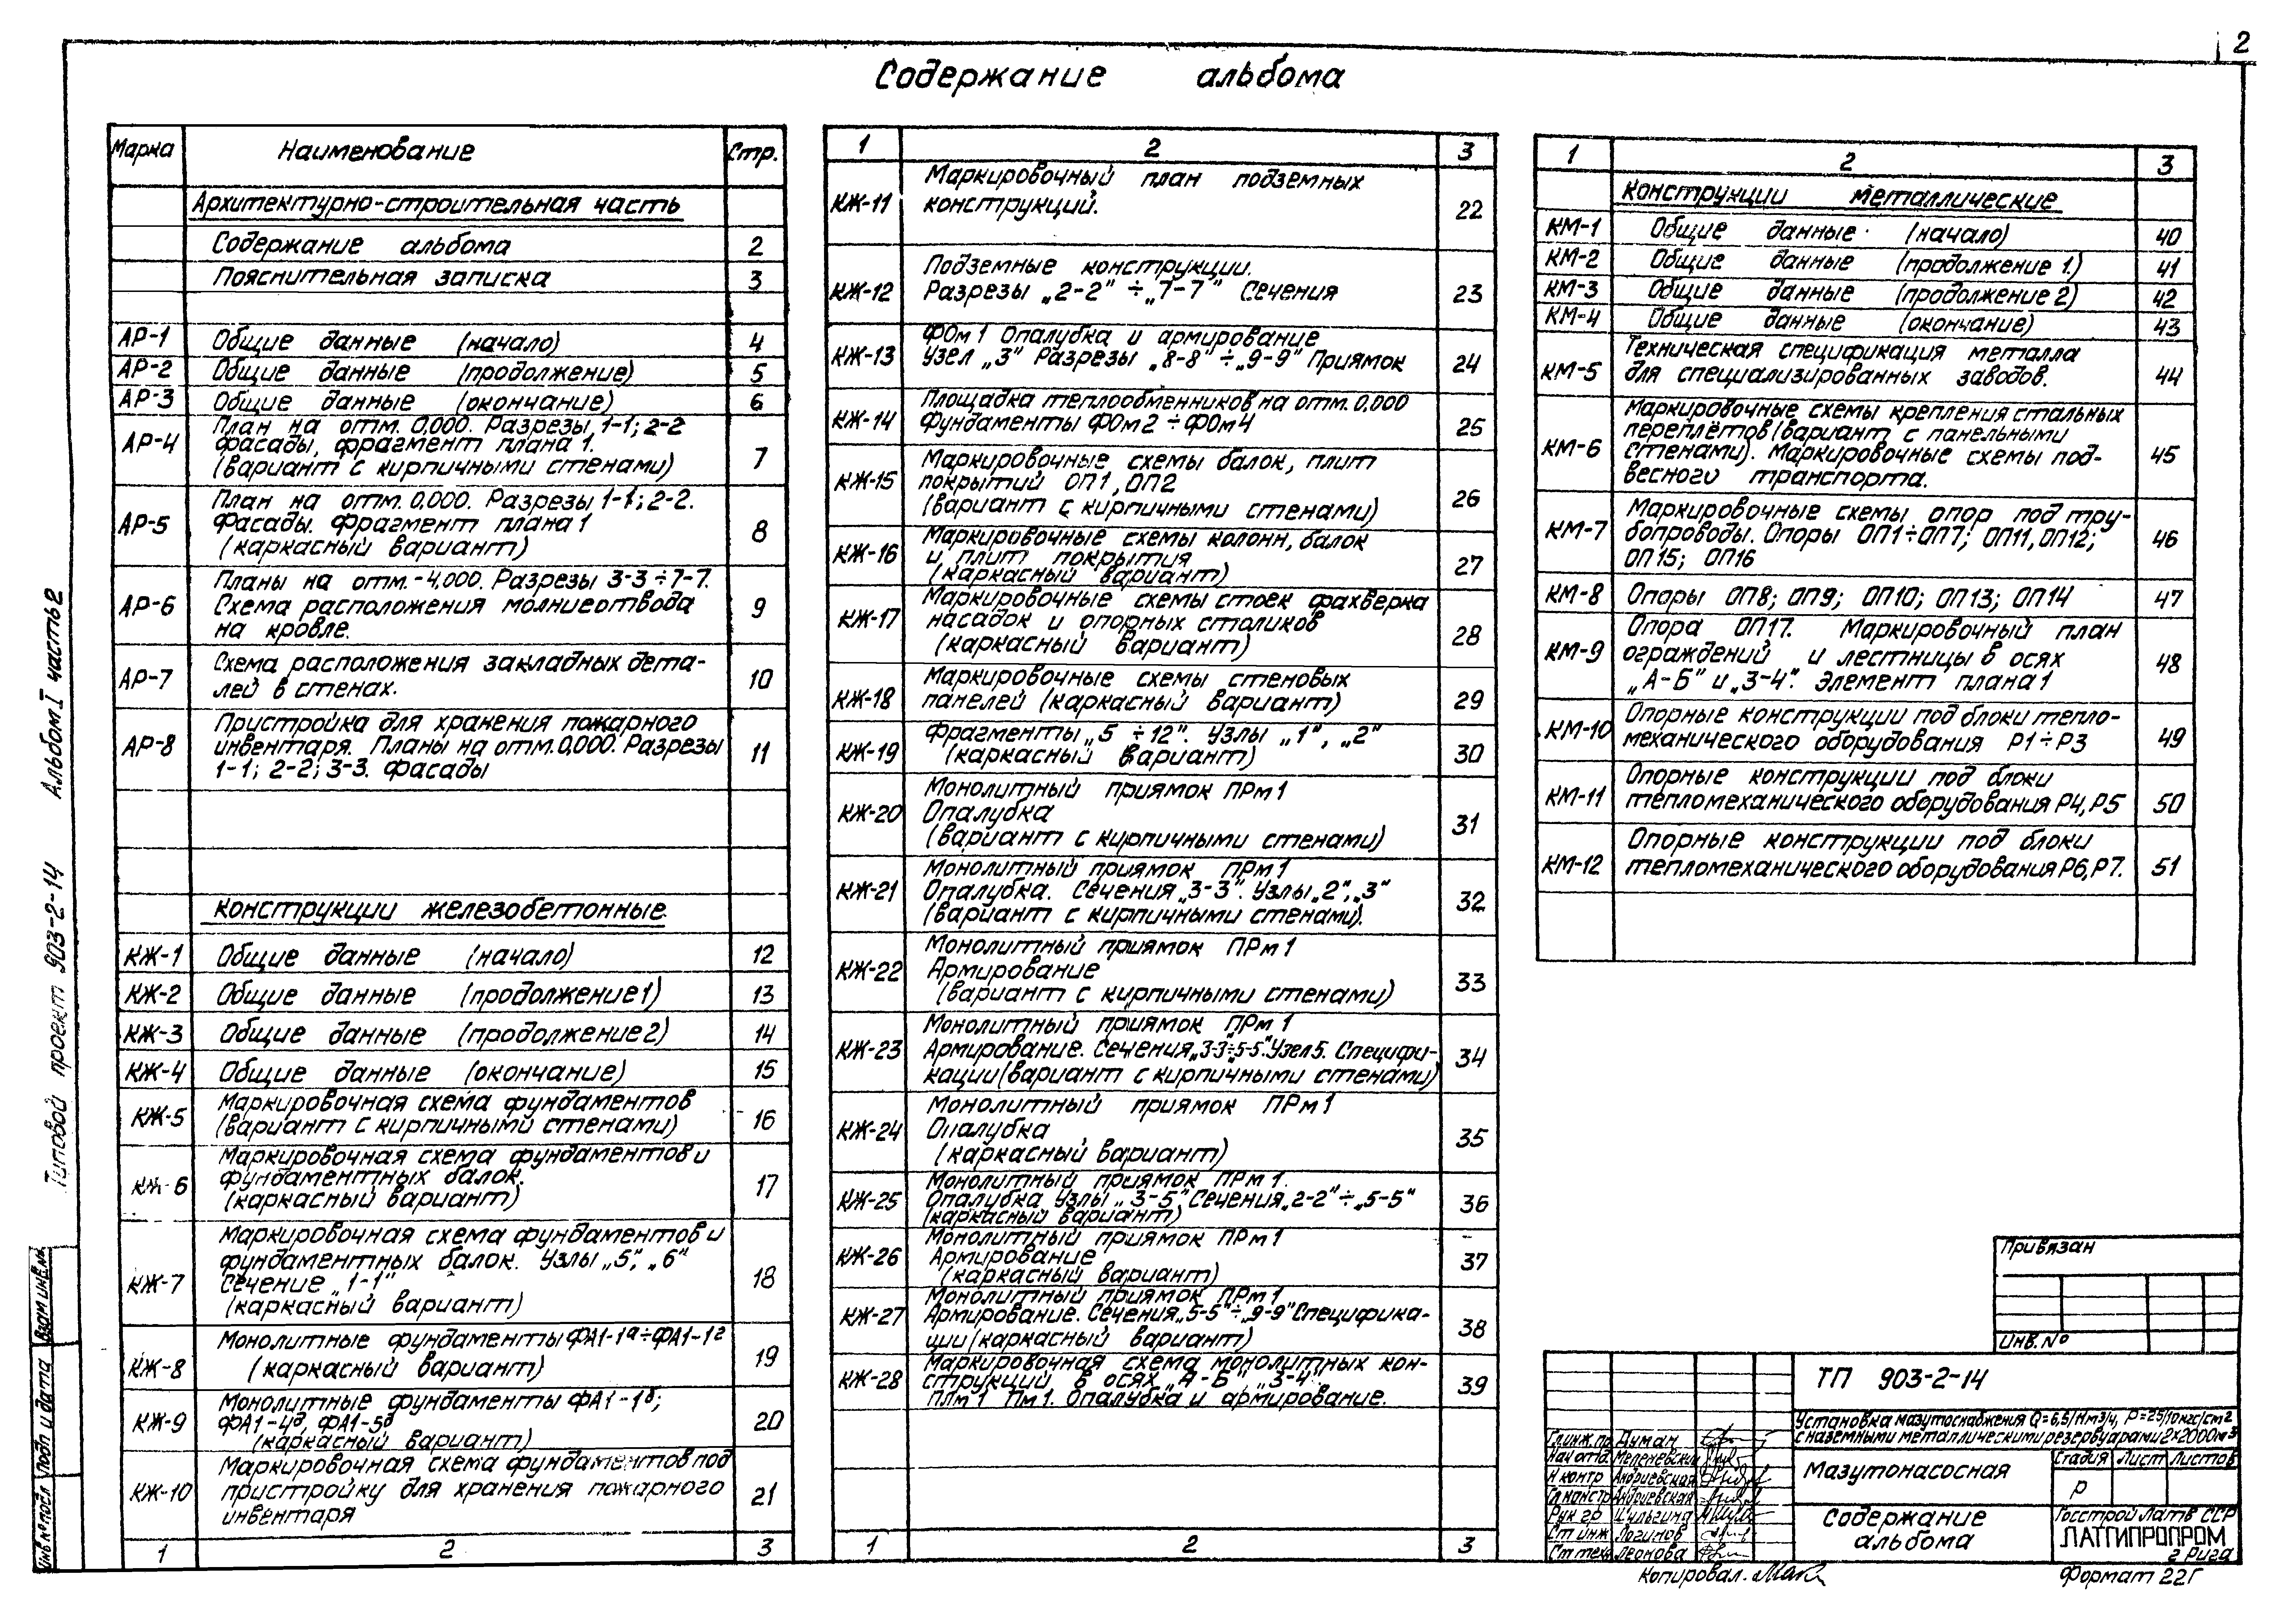 2
Содержание альбома
Марка Наименование Стр.
Архитектурно-строительная часть
Содержание альбома 2
Пояснительная записка 3
АР-1 Общие данные (начало) 4
АР-2 Общие данные (продолжение) 5
АР-3 Общие данные (окончание) 6
План на отм. 0,000. Разрезы 1-1; 2-2
АР-4 фасады, фрагмент плана 1. 7
(вариант с кирпичными стенами)
План на отм. 0,000. Разрезы 1-1; 2-2.
АР-5 Фасады. фрагмент плана 1 8
(каркасный вариант)
Планы на отм. -4,000. Разрезы 3-3÷7-7.
АР-6 Схема расположения молниеотвода 9
на кровле.
АР-7 Схема расположения закладных дета- 10
лей в стенах.
Пристройка для хранения пожарного
АР-8 инвентаря. Планы на отм. 0,000. Разрезы 11
1-1; 2-2; 3-3. фасады
конструкции железобетонные.
КЖ-1 Общие данные (начало) 12
КЖ-2 Общие данные (продолжение 1) 13
КЖ-3 Общие данные (продолжение 2) 14
КЖ-4 Общие данные (окончание) 15
КЖ-5 Маркировочная схема фундаментов 16
(вариант с кирпичными стенами)
Маркировочная схема фундаментов и
КЖ-6 фундаментных балок. 17
(каркасный вариант)
Маркировочная схема фундаментов и
фундаментных балок. Узлы „5”, „6”
КЖ-7 Сечение „1-1” 18
(каркасный вариант)
Монолитные фундаменты ФА1-1а÷ФА1-1г
КЖ-8 (каркасный вариант) 19
Монолитные фундаменты ФА1-1б;
КЖ-9 ФА1-4д, ФА1-5д 20
(каркасный вариант)
Маркировочная схема фундаментов под
КЖ-10 пристройку для хранения пожарного 21
инвентаря
1 2 3
1 2 3
Маркировочный план подземных
КЖ-11 конструкций. 22
Подземные конструкции.
КЖ-12 Разрезы „2-2” ÷ „7-7” Сечения 23
ФОм 1 Опалубка и армирование
КЖ-13 Узел „3” Разрезы „8-8” ÷ „9-9” Приямок 24
Площадка теплообменников на отм. 0,000
КЖ-14 Фундаменты ФОм 2 ÷ ФОм 4 25
Маркировочные схемы балок, плит
КЖ-15 покрытий ОП1, ОП2 26
(вариант с кирпичными стенами)
Маркировочные схемы колонн, балок
КЖ-16 и плит покрытия 27
(каркасный вариант)
Маркировочные схемы стоек фахверка
КЖ-17 насадок и опорных столиков 28
(каркасный вариант)
Маркировочные схемы стеновых
КЖ-18 панелей (каркасный вариант) 29
Фрагменты „5 ÷ 12”. Узлы „1”, „2”
КЖ-19 (каркасный вариант) 30
Монолитный приямок ПРм 1
КЖ-20 Опалубка 31
(вариант с кирпичными стенами)
Монолитный приямок ПРм 1
КЖ-21 Опалубка. Сечения „3-3”. Узлы „2”, „3” 32
(вариант с кирпичными стенами).
Монолитный приямок ПРм 1
КЖ-22 Армирование 33
(вариант с кирпичными стенами)
Монолитный приямок ПРм 1
КЖ-23 Армирование. Сечения „3-3÷5-5.” Узел 5. Специфи- 34
кации (вариант с кирпичными стенами)
Монолитный приямок ПРм 1
КЖ-24 Опалубка 35
(каркасный вариант)
Монолитный приямок ПРм 1.
КЖ-25 Опалубка Узлы „3-5” Сечения „2-2” ÷ „5-5” 36
(каркасный вариант)
Монолитный приямок ПРм 1
КЖ-26 Армирование 37
(каркасный вариант)
Монолитный приямок ПРм 1
КЖ-27 Армирование. Сечения „5-5” ÷ „9-9” Специфика- 38
ции (каркасный вариант)
Маркировочная схема монолитных кон-
КЖ-28 струкций в осях „А-Б”, „3-4”. 39
ПЛм 1 Пм 1. Опалубка и армирование.
1 2 3
1 2 3
конструкции металлические
КМ-1 Общие данные (начало) 40
КМ-2 Общие данные (продолжение 1.) 41
КМ-3 Общие данные (продолжение 2) 42
КМ-4 Общие данные (окончание) 43
Техническая спецификация металла
КМ-5 для специализированных заводов. 44
Маркировочные схемы крепления стальных
переплётов (вариант с панельными
КМ-6 стенами). Маркировочные схемы под- 45
весного транспорта.
Маркировочные схемы опор под тру-
КМ-7 бопроводы. Опоры ОП1÷ОП7; ОП11, ОП12; 46
ОП15; ОП16
КМ-8 Опоры ОП8; ОП9; ОП10; ОП13; ОП14 47
Опора ОП17. Маркировочный план
КМ-9 ограждений и лестницы в осях 48
„А-Б” и „3-4”. Элемент плана 1
Опорные конструкции под блоки тепло-
КМ-10 механического оборудования Р1÷Р3 49
Опорные конструкции под блоки
КМ-11 тепломеханического оборудования Р4, Р5 50
Опорные конструкции под блоки
КМ-12 тепломеханического оборудования Р6, Р7. 51
Типовой проект 903-2-14 Альбом I часть 2
Взам инв.№
Подп и дата
Инв № подл
Привязан
Инв. №
ТП 903-2-14
Установка мазутоснабжения Q=6,5/11м3/ч, Р=25/10кгс/см2
с наземными металлическими резервуарами 2×2000м3
Гл.инж.пр Думан
Нач отд Меленевский
Н контр Андриевская
Гл констр Андриевская
Рук гр Шульгина
Ст инж Логинов
Ст техн Леонова
Мазутонасосная
Стадия Лист Листов
Р
Содержание
альбома
Госстрой Латв ССР
ЛАТГИПРОПРОМ
г Рига
Копировал.
Формат 22Г